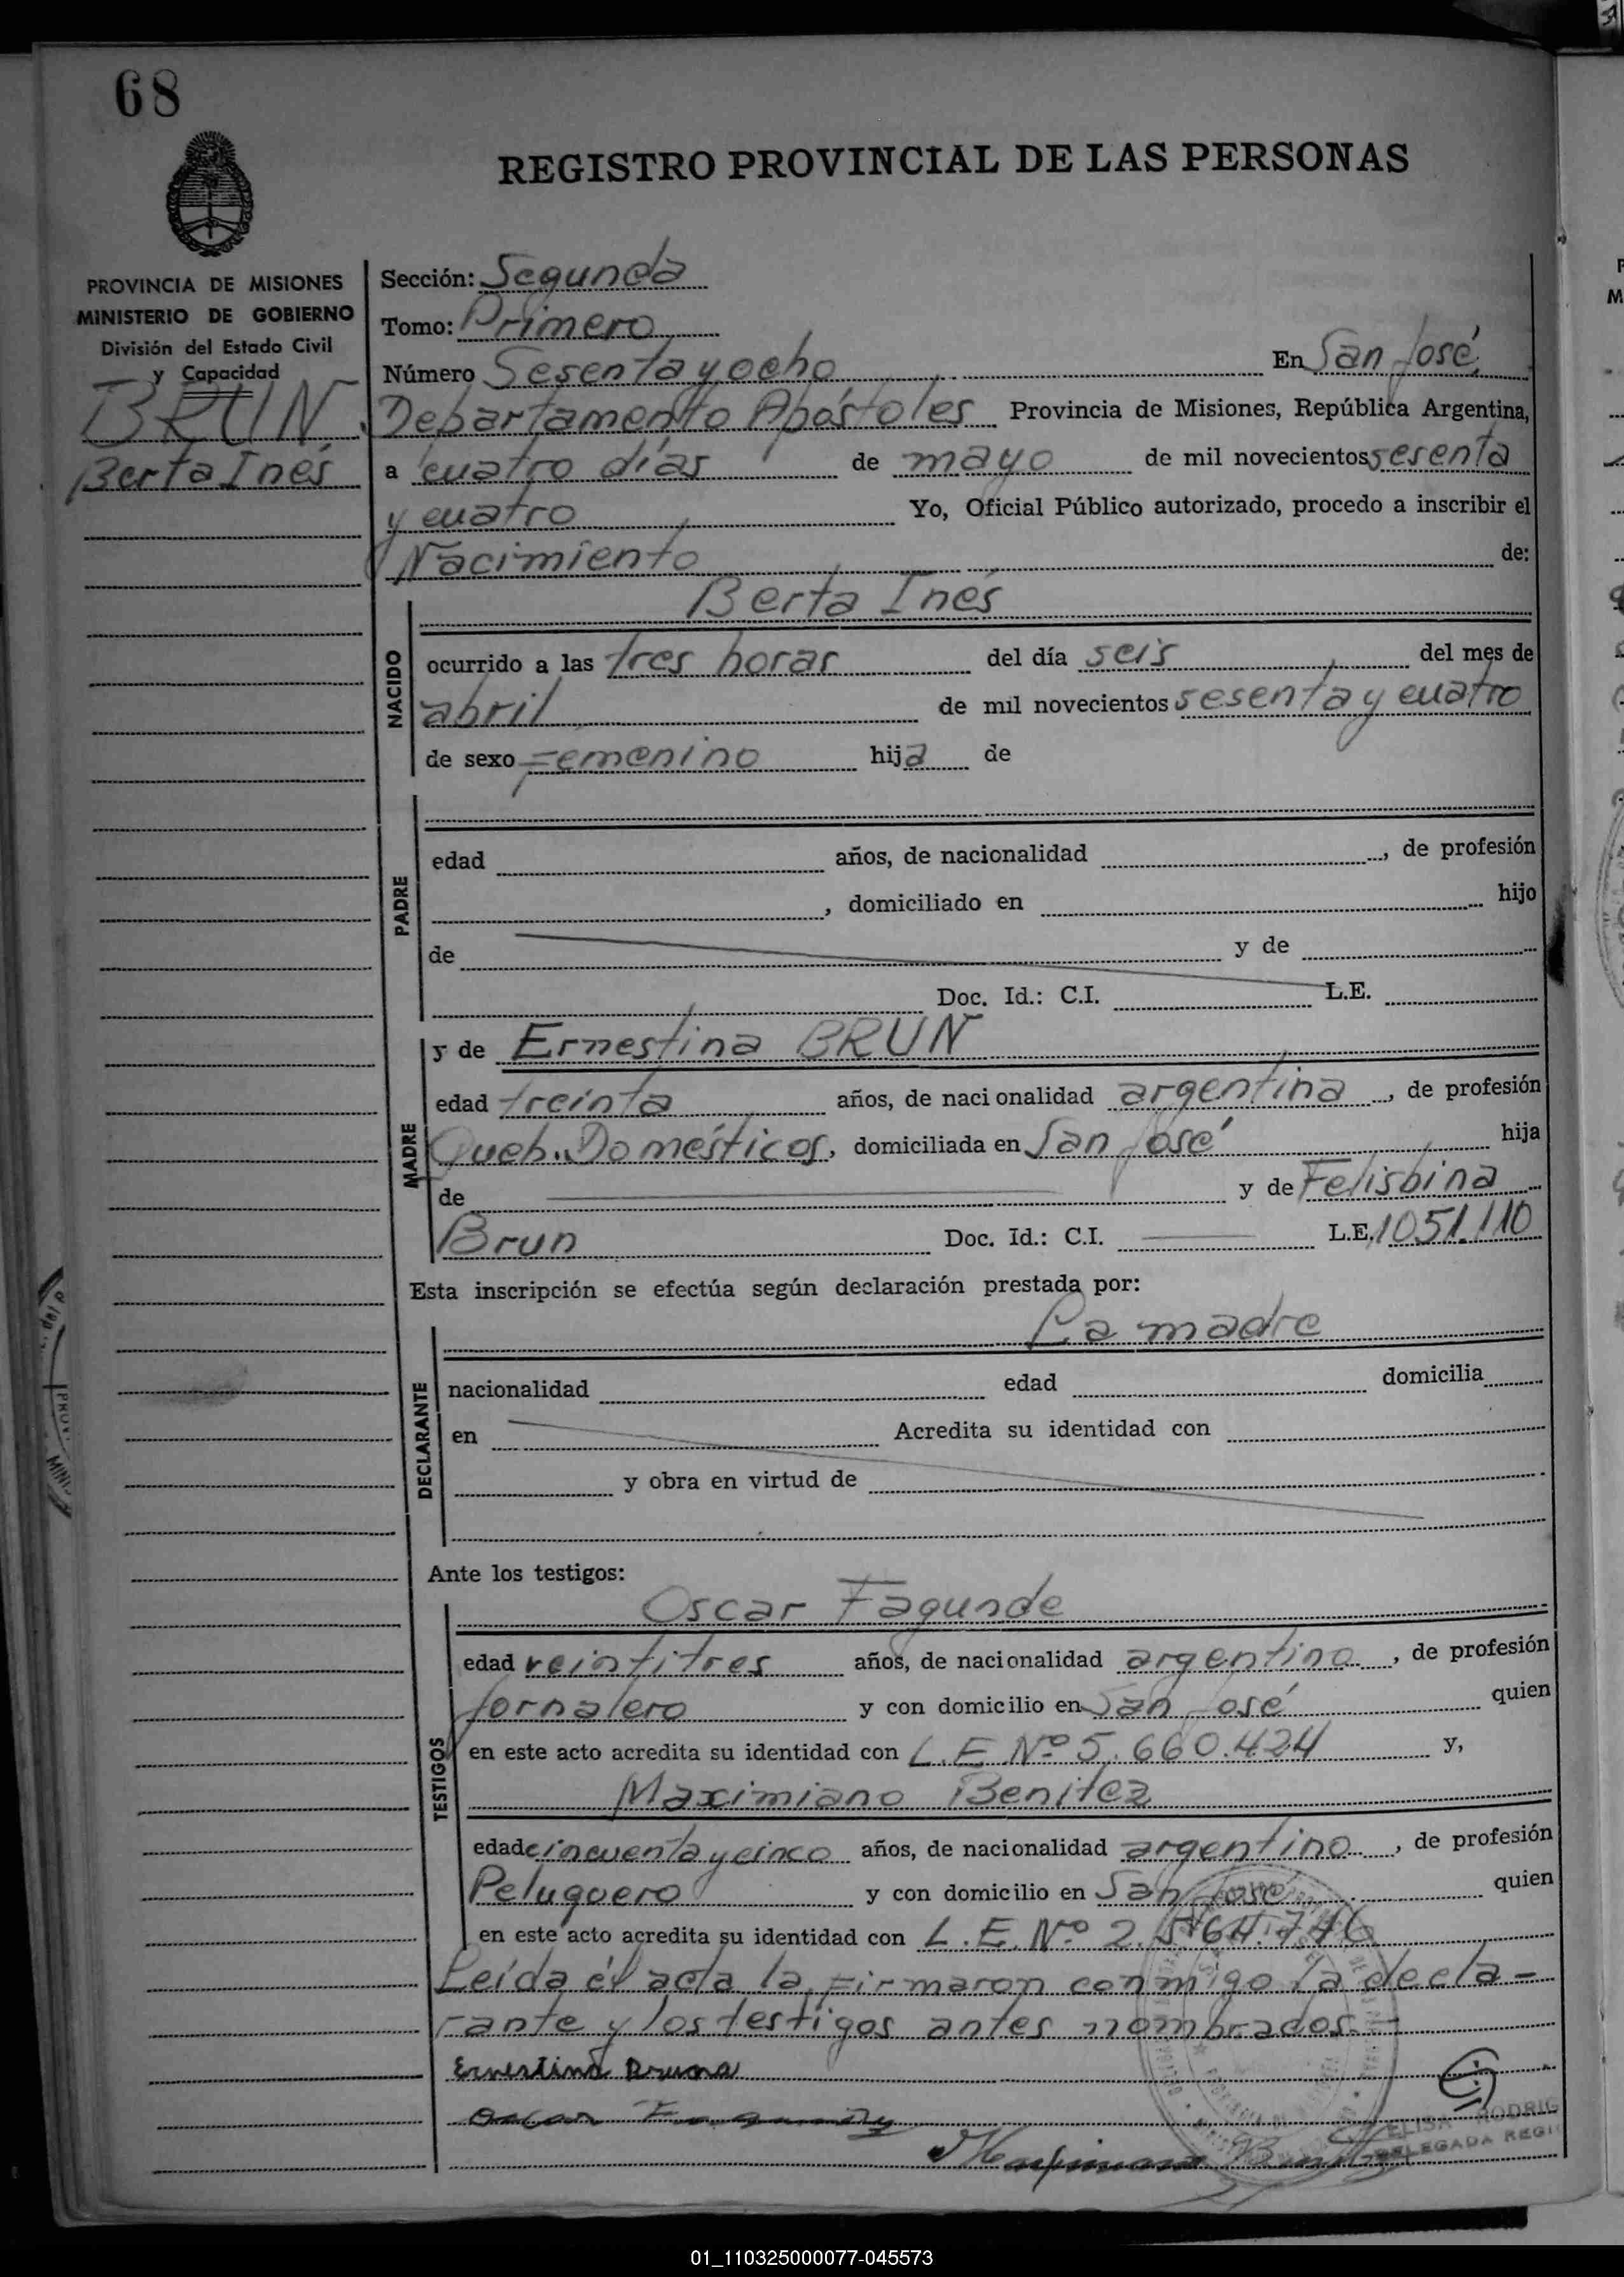 68
REGISTRO PROVINCIAL DE LAS PERSONAS
PROVINCIA DE MISIONES
MINISTERIO DE GOBIERNO
División del Estado Civil
y Capacidad
BRUN
Berta Inés
Sección: Segunda
Tomo: Primero
Número Sesenta y ocho En San José,
Departamento Apóstoles Provincia de Misiones, República Argentina,
a cuatro días de mayo de mil novecientos sesenta
y cuatro Yo, Oficial Público autorizado, procedo a inscribir el
Nacimiento de:
NACIDO
Berta Inés
ocurrido a las tres horas del día seis del mes de
abril de mil novecientos sesenta y cuatro
de sexo Femenino hija de
PADRE
edad años, de nacionalidad , de profesión
, domiciliado en hijo
de y de
Doc. Id.: C.I. L.E.
MADRE
y de Ernestina BRUN
edad treinta años, de nacionalidad argentina, de profesión
Queh. Domésticos, domiciliada en San José hija
de y de Felisbina
Brun Doc. Id.: C.I. L.E. 1051.110
Esta inscripción se efectúa según declaración prestada por:
DECLARANTE
La madre
nacionalidad edad domicilia
en Acredita su identidad con
y obra en virtud de
Ante los testigos:
TESTIGOS
Oscar Fagunde
edad veintitres años, de nacionalidad argentino, de profesión
Jornalero y con domicilio en San José quien
en este acto acredita su identidad con L.E Nº 5.660.424 y,
Maximiano Benitez
edad cincuenta y cinco años, de nacionalidad argentino, de profesión
Peluquero y con domicilio en San José quien
en este acto acredita su identidad con L.E. Nº 2.564.746
Leída él acta la Firmaron conmigo la decla-
rante y los testigos antes nombrados.-
Ernestina Bruna
Oscar
Maximiano Benitez
ELISA RODRIG
DELEGADA REGI
01_110325000077-045573